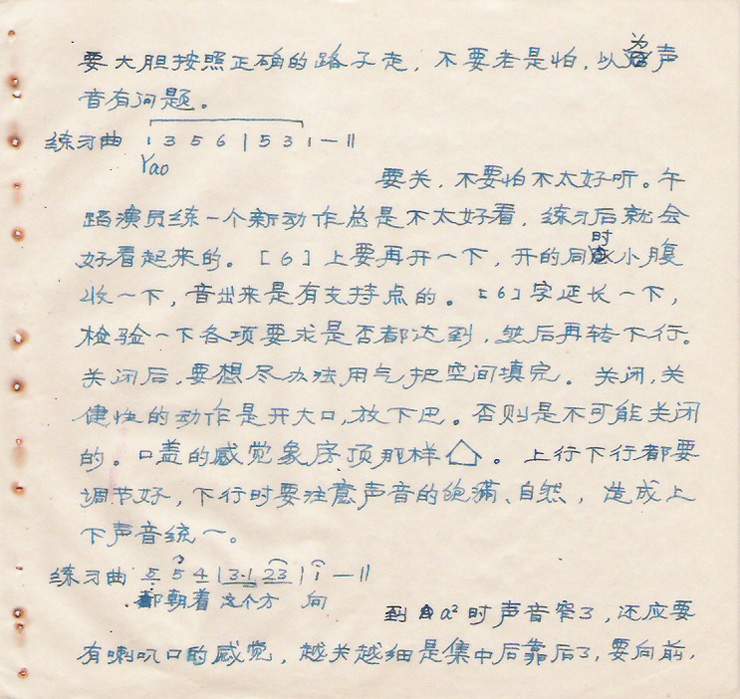 要大胆按照正确的路子走，不要老是怕，以为声
音有问题。
练习曲 i 3 5 6 | 5 3 1 — ||
Yao
要关，不要怕不太好听。午
蹈演员练一个新动作总是不太好看，练习后就会
好看起来的。[6]上要再开一下，开的同时小腹
收一下，音出来是有支持点的。[6]字延长一下，
检验一下各项要求是否都达到，然后再转下行。
关闭后，要想尽办法用气把空间填完。关闭，关
健性的动作是开大口，放下巴。否则是不可能关闭
的。口盖的感觉象房顶那样⌂。上行下行都要
调节好，下行时要注意声音的饱满、自然，造成上
下声音统一。
练习曲 5 5 4 | 3·1 23 | i — ||
都朝着这个方 向
到a²时声音窄了，还应要
有喇叭口的感觉，越关越细是集中后靠后了，要向前，